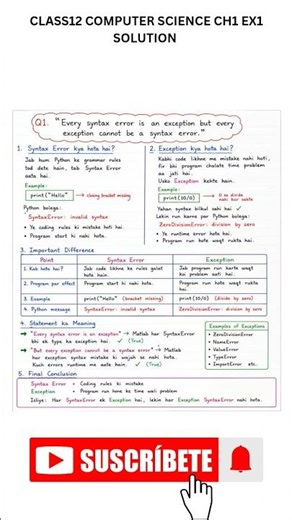 CLASS12 COMPUTER SCIENCE CH1 EX1
SOLUTION
Q1. "Every syntax error is an exception but every
exception cannot be a syntax error."
1. Syntax Error kya hota hai?
Jab hum Python ke grammar rules
tod dete hain, tab Syntax Error
aata hai.
Example:
print("Hello" → closing bracket missing
Python bolega:
SyntaxError: invalid syntax
• Ye coding rules ki mistake hoti hai
• Program start hi nahi hota.
2. Exception kya hota hai?
Kabhi code likhne me mistake nahi hoti,
fir bhi program chalate time problem
aa jati hai.
Usko Exception kehte hain.
Example:
print(10/0) → 0 se divide nahi kar sakte
Yahan syntax bilkul sahi hai ✓
Lekin run karne par Python bolega:
ZeroDivisionError: division by zero
• Ye runtime error hota hai.
• Program run hote waqt rukta hai.
3. Important Difference
Point Syntax Error Exception
1. Kab hota hai? Jab code likhne ke rules galat hote hain. Jab program run karte waqt koi problem aati hai.
2. Program par effect Program start hi nahi hota. Program run hote waqt rukta hai.
3. Example print("Hello (bracket missing) print(10/0) (divide by zero)
4. Python message SyntaxError: invalid syntax ZeroDivisionError: division by zero
4. Statement ka Meaning
→ "Every syntax error is an exception" → Matlab har SyntaxError
bhi ek type ka exception hai. ✓ (True)
→ "But every exception cannot be a syntax error" → Matlab
har exception syntax mistake ki wajah se nahi hota.
Kuch errors runtime me aate hain. ✓ (True)
Examples of Exceptions
• ZeroDivisionError
• NameError
• ValueError
• TypeError
• ImportError etc.
5. Final Conclusion
Syntax Error = Coding rules ki mistake
Exception = Program run hone ke time wali problem
Isliye: Har SyntaxError ek Exception hai, lekin har Exception SyntaxError nahi hota.
SUSCRÍBETE